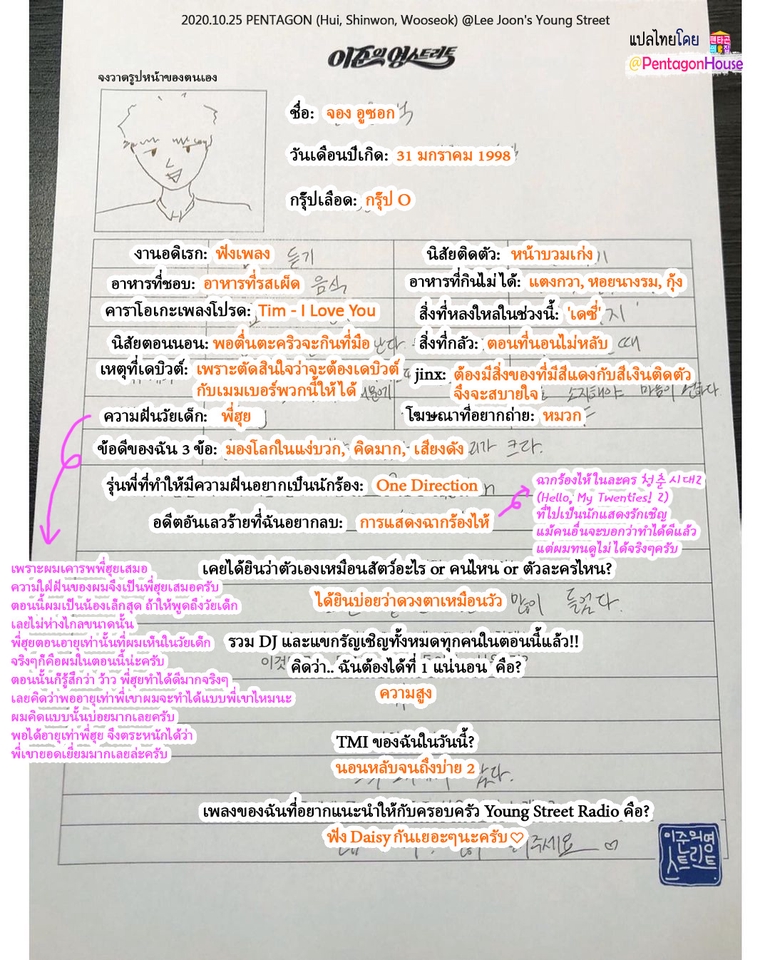 2020.10.25 PENTAGON (Hui, Shinwon, Wooseok) @Lee Joon's Young Street
แปลไทยโดย
@PentagonHouse
이준의 영스트리트
จงวาดรูปหน้าของตนเอง
ชื่อ: จอง อูซอก
วันเดือนปีเกิด: 31 มกราคม 1998
กรุ๊ปเลือด: กรุ๊ป O
งานอดิเรก: ฟังเพลง 듣기
นิสัยติดตัว: หน้าบวมเก่ง
อาหารที่ชอบ: อาหารที่รสเผ็ด 음식
อาหารที่กินไม่ได้: แตงกวา, หอยนางรม, กุ้ง
คาราโอเกะเพลงโปรด: Tim - I Love You
สิ่งที่หลงใหลในช่วงนี้: 'เดซี่' 지
นิสัยตอนนอน: พอตื่นตะคริวจะกินที่มือ 난다.
สิ่งที่กลัว: ตอนที่นอนไม่หลับ 때
เหตุที่เดบิวต์: เพราะตัดสินใจว่าจะต้องเดบิวต์
กับเมมเบอร์พวกนี้ให้ได้
jinx: ต้องมีสิ่งของที่มีสีแดงกับสีเงินติดตัว
จึงจะสบายใจ 소지해야 마음이 편하다
ความฝันวัยเด็ก: พี่ฮุย
โฆษณาที่อยากถ่าย: หมวก
ข้อดีของฉัน 3 ข้อ: มองโลกในแง่บวก, คิดมาก, เสียงดัง 리가 크다.
รุ่นพี่ที่ทำให้มีความฝันอยากเป็นนักร้อง: One Direction
อดีตอันเลวร้ายที่ฉันอยากลบ: การแสดงฉากร้องไห้
ฉากร้องไห้ในละคร 청춘시대2
(Hello, My Twenties! 2)
ที่ไปเป็นนักแสดงรักเชิญ
แม้คนอื่นจะบอกว่าทำได้ดีแล้ว
แต่ผมทนดูไม่ได้จริงๆครับ
เพราะผมเคารพพี่ฮุยเสมอ
ความใฝ่ฝันของผมจึงเป็นพี่ฮุยเสมอครับ
ตอนนี้ผมเป็นน้องเล็กสุด ถ้าให้พูดถึงวัยเด็ก
เลยไม่ห่างไกลขนาดนั้น
พี่ฮุยตอนอายุเท่านั้นที่ผมเห็นในวัยเด็ก
จริงๆก็คือผมในตอนนี้น่ะครับ
ตอนนั้นก็รู้สึกว่า ว้าว พี่ฮุยทำได้ดีมากจริงๆ
เลยคิดว่าพออายุเท่าพี่เขาผมจะทำได้แบบพี่เขาไหมนะ
ผมคิดแบบนั้นบ่อยมากเลยครับ
พอได้อายุเท่าพี่ฮุย จึงตระหนักได้ว่า
พี่เขายอดเยี่ยมมากเลยล่ะครับ
เคยได้ยินว่าตัวเองเหมือนสัตว์อะไร or คนไหน or ตัวละครไหน?
ได้ยินบ่อยว่าดวงตาเหมือนวัว 많이 들었다.
รวม DJ และแขกรัญเชิญทั้งหมดทุกคนในตอนนี้แล้ว!!
คิดว่า.. ฉันต้องได้ที่ 1 แน่นอน คือ?
ความสูง
TMI ของฉันในวันนี้?
นอนหลับจนถึงบ่าย 2
เพลงของฉันที่อยากแนะนำให้กับครอบครัว Young Street Radio คือ?
ฟัง Daisy กันเยอะๆนะครับ♡ 주세요 ♡
이준의영
스트리트